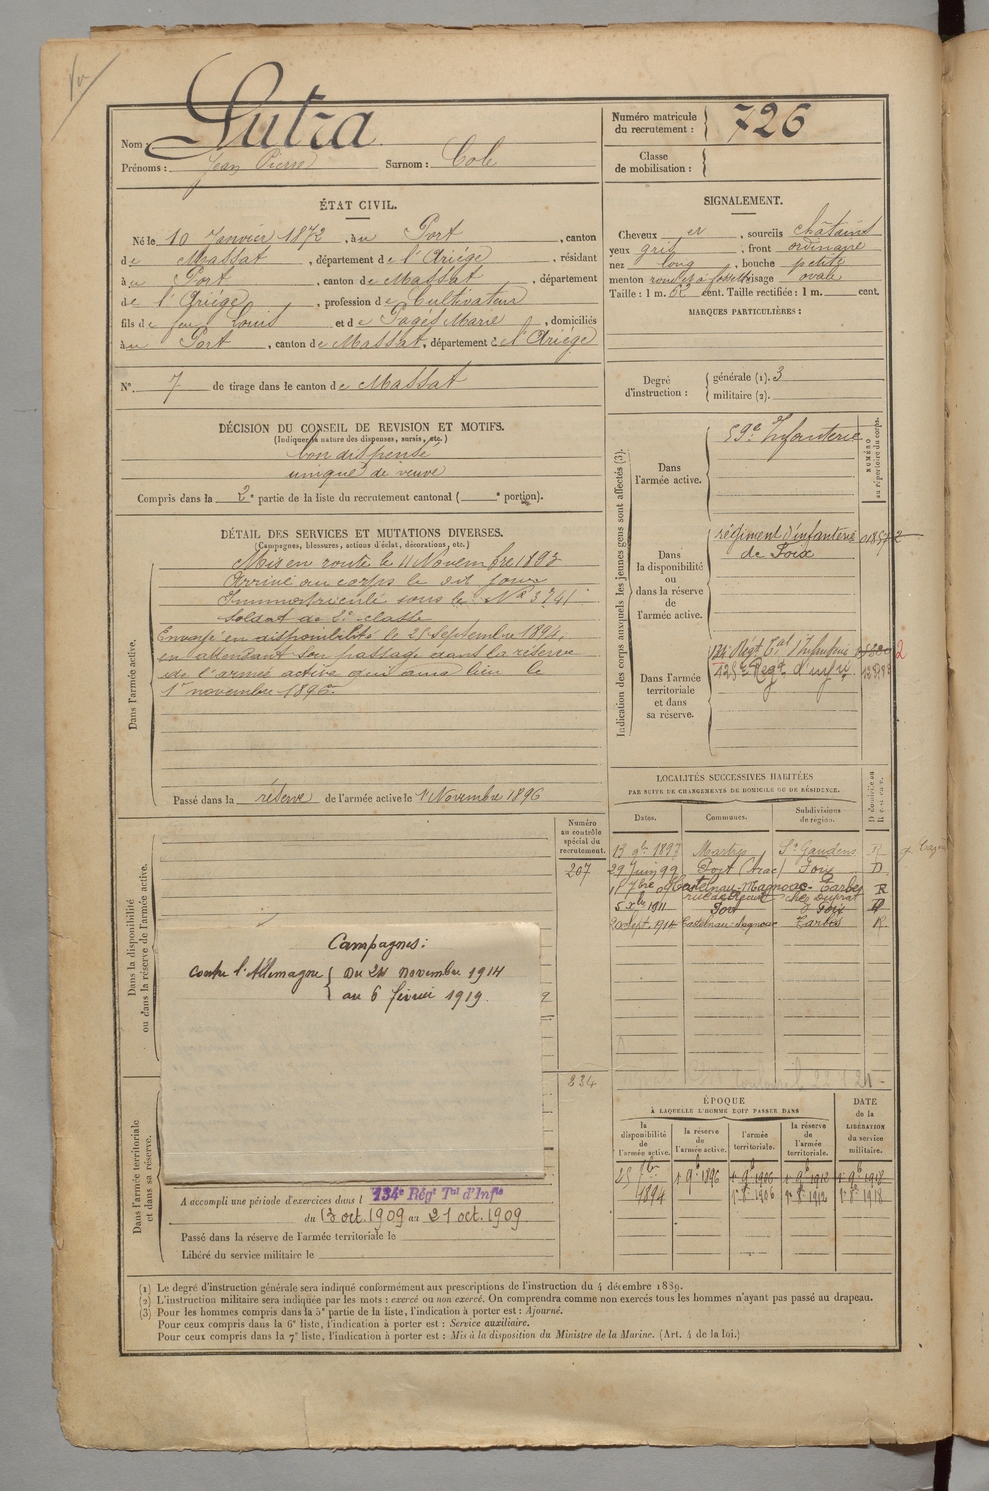 Nom : Lutra
Prénoms : Jean Pierre Surnom : Cole
Numéro matricule du recrutement : 726
Classe de mobilisation :
ÉTAT CIVIL.
Né le 10 Janvier 1872, à u Port, canton
de Massat, département de l'Ariége, résidant
à u Port, canton de Massat, département
de l'Ariége, profession de Cultivateur
fils de feu Louis et de Pagés Marie, domiciliés
à u Port, canton de Massat, département de l'Ariége
N° 7 de tirage dans le canton de Massat
SIGNALEMENT.
Cheveux et, sourcils châtains
yeux gris, front ordinaire
nez long, bouche petite
menton rond et à fossette visage ovale
Taille : 1 m. 52 cent. Taille rectifiée : 1 m. cent.
MARQUES PARTICULIÈRES :
Degré d'instruction : générale (1). 3
militaire (2).
DÉCISION DU CONSEIL DE REVISION ET MOTIFS.
(Indiquer la nature des dispenses, sursis, etc.)
bon dispensé
unique de veuve
Compris dans la 2e partie de la liste du recrutement cantonal ( e portion).
DÉTAIL DES SERVICES ET MUTATIONS DIVERSES.
(Campagnes, blessures, actions d'éclat, décorations, etc.)
Dans l'armée active.
Mis en route le 11 Novembre 1893
Arrivé au corps le dit jour
Immatriculé sous le N° 3741
soldat de 2e classe
Envoyé en disponibilité le 25 Septembre 1894,
en attendant son passage dans la réserve
de l'armée active qui aura lieu le
1er novembre 1896.
Passé dans la réserve de l'armée active le 1 Novembre 1896
Indication des corps auxquels les jeunes gens sont affectés (3).
NUMÉRO au répertoire du corps.
Dans l'armée active.
59e Infanterie
Dans la disponibilité ou dans la réserve de l'armée active.
régiment d'infanterie
de Foix
Dans l'armée territoriale et dans sa réserve.
134e Régt Tal d'Infanterie
2
LOCALITÉS SUCCESSIVES HABITÉES
PAR SUITE DE CHANGEMENTS DE DOMICILE OU DE RÉSIDENCE.
Dates. Communes. Subdivisions de région. D domicile ou R résidence.
13 9bre 1897 Martres St Gaudens R
29 Juin 99 Port (Arac) Foix D
Castelnau-Magnoac - Tarbes R
5 Xbre 1911 Port Foix
20 Sept. 1914 Castelnau-Magnoac Tarbes R.
Numéro au contrôle spécial du recrutement.
207
834
Dans la disponibilité ou dans la réserve de l'armée active.
Campagnes :
contre l'Allemagne { Du 24 novembre 1914
au 6 février 1919.
Dans l'armée territoriale et dans sa réserve.
A accompli une période d'exercices dans l 134e Régt Tal d'Infie
du 13 oct. 1909 au 21 oct. 1909.
Passé dans la réserve de l'armée territoriale le
Libéré du service militaire le
ÉPOQUE
À LAQUELLE L'HOMME DOIT PASSER DANS
la disponibilité de l'armée active. la réserve de l'armée active. l'armée territoriale. la réserve de l'armée territoriale. DATE de la LIBÉRATION du service militaire.
25 7bre 1er 9b 1896 1er 9b 1906 1er 9b 1912 1er 9b 1918
1894 1er 8b 1906 1er 8b 1912 1er 8b 1918
(1) Le degré d'instruction générale sera indiqué conformément aux prescriptions de l'instruction du 4 décembre 1889.
(2) L'instruction militaire sera indiquée par les mots : exercé ou non exercé. On comprendra comme non exercés tous les hommes n'ayant pas passé au drapeau.
(3) Pour les hommes compris dans la 5e partie de la liste, l'indication à porter est : Ajourné.
Pour ceux compris dans la 6e liste, l'indication à porter est : Service auxiliaire.
Pour ceux compris dans la 7e liste, l'indication à porter est : Mis à la disposition du Ministre de la Marine. (Art. 4 de la loi.)